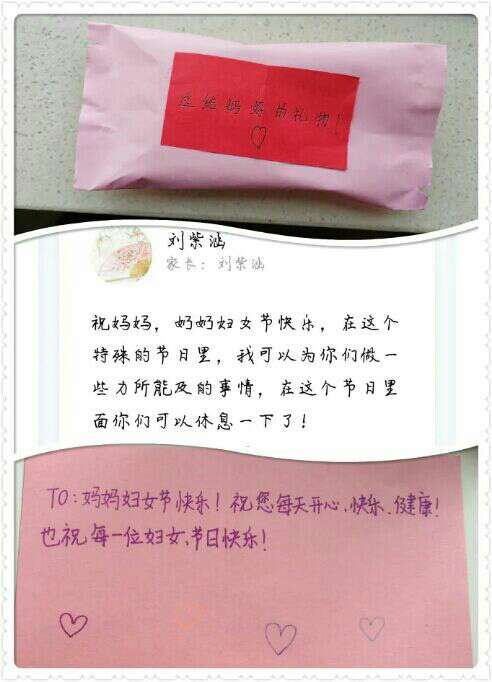 妈妈的礼物！
刘紫涵
家长：刘紫涵
祝妈妈，奶奶妇女节快乐，在这个
特殊的节日里，我可以为你们做一
些力所能及的事情，在这个节日里
面你们可以休息一下了！
TO:妈妈妇女节快乐！祝您每天开心、快乐、健康！
也祝每一位妇女、节日快乐！